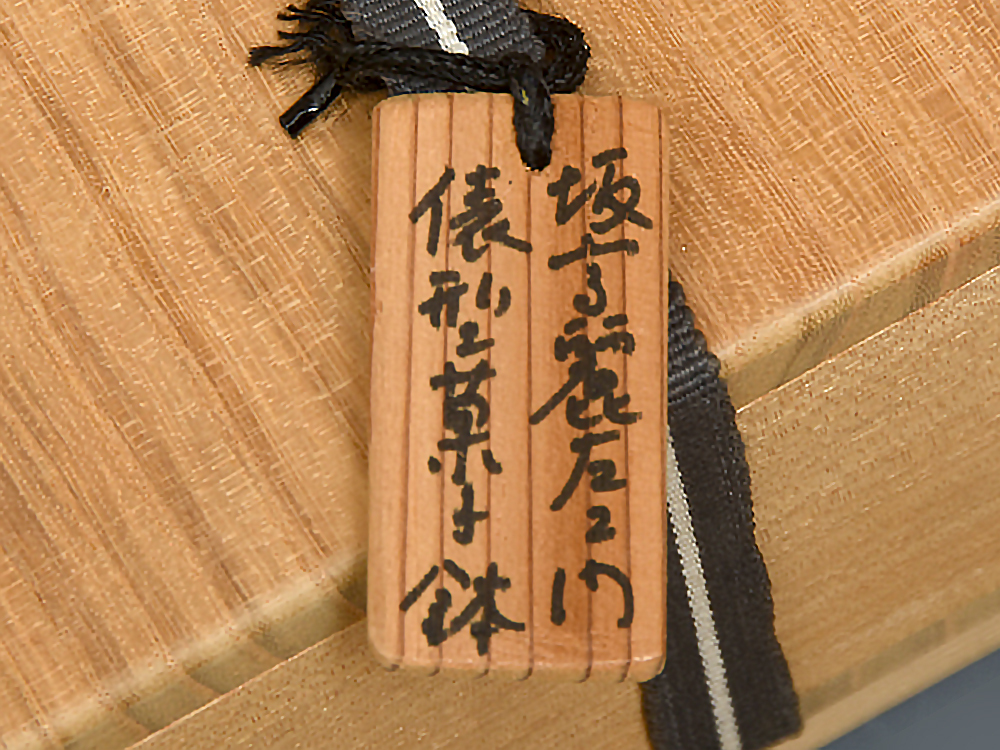 坂高麗左ヱ門
俵形菓子鉢